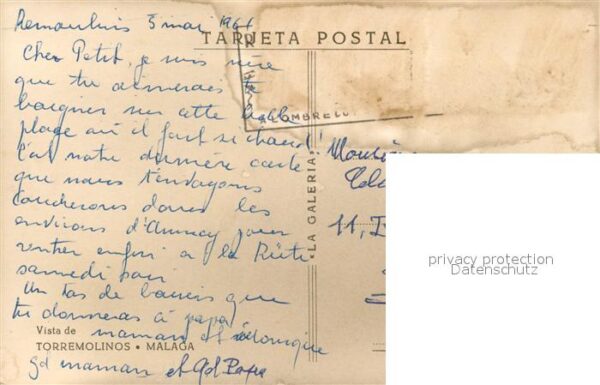 Remoulins 3 mai 1961
TARJETA POSTAL
Cher Petit, je suis sûre
que tu aimerais te
baigner sur cette belle
plage où il fait si chaud!
C'est notre dernière carte
que nous t'envoyons
coucherons dans les
environs d'Annecy pour
rentrer enfin à la
samedi soir
Un tas de baisers que
tu donneras à papa
maman et Véronique
gd maman et Gd Papa
Vista de
TORREMOLINOS • MALAGA
"LA GALERIA"
ALOMBRELL
Monsieur
11,
privacy protection
Datenschutz